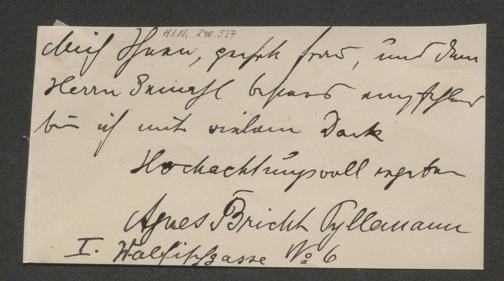 H.I.N. 240.537
Mich Ihnen, geehrte Frau, und dem
Herrn Gemahl bestens empfehlend
bin ich mit vielem Dank
Hochachtungsvoll ergeben
Agnes Bricht Pyllemann
I. Wallfischgasse No 6